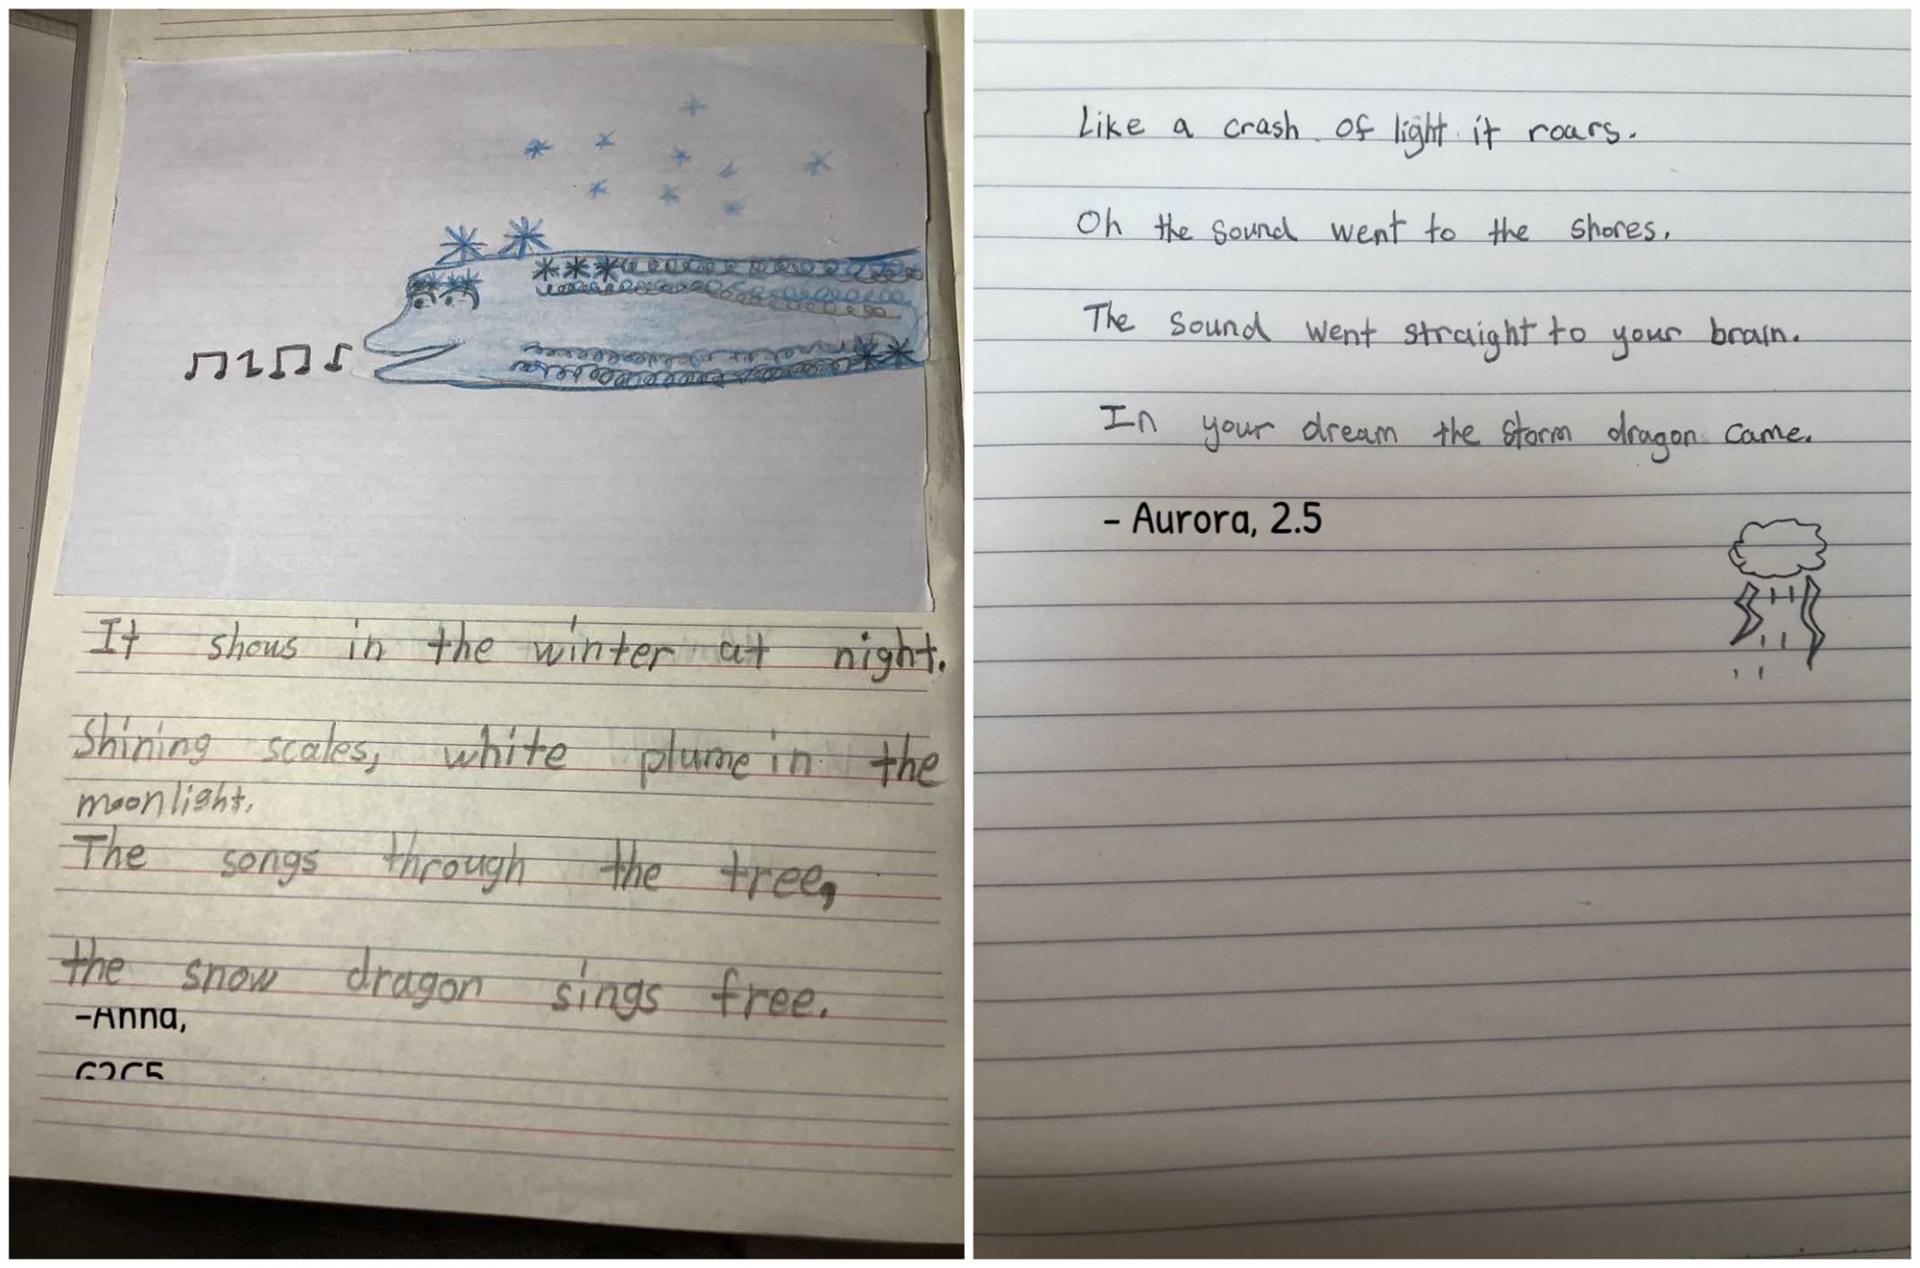 It shows in the winter at night.
Shining scales, white plume in the
moonlight.
The songs through the tree,
the snow dragon sings free.
-Anna,
G2C5
Like a crash of light it roars.
Oh the sound went to the shores.
The sound went straight to your brain.
In your dream the storm dragon came.
- Aurora, 2.5